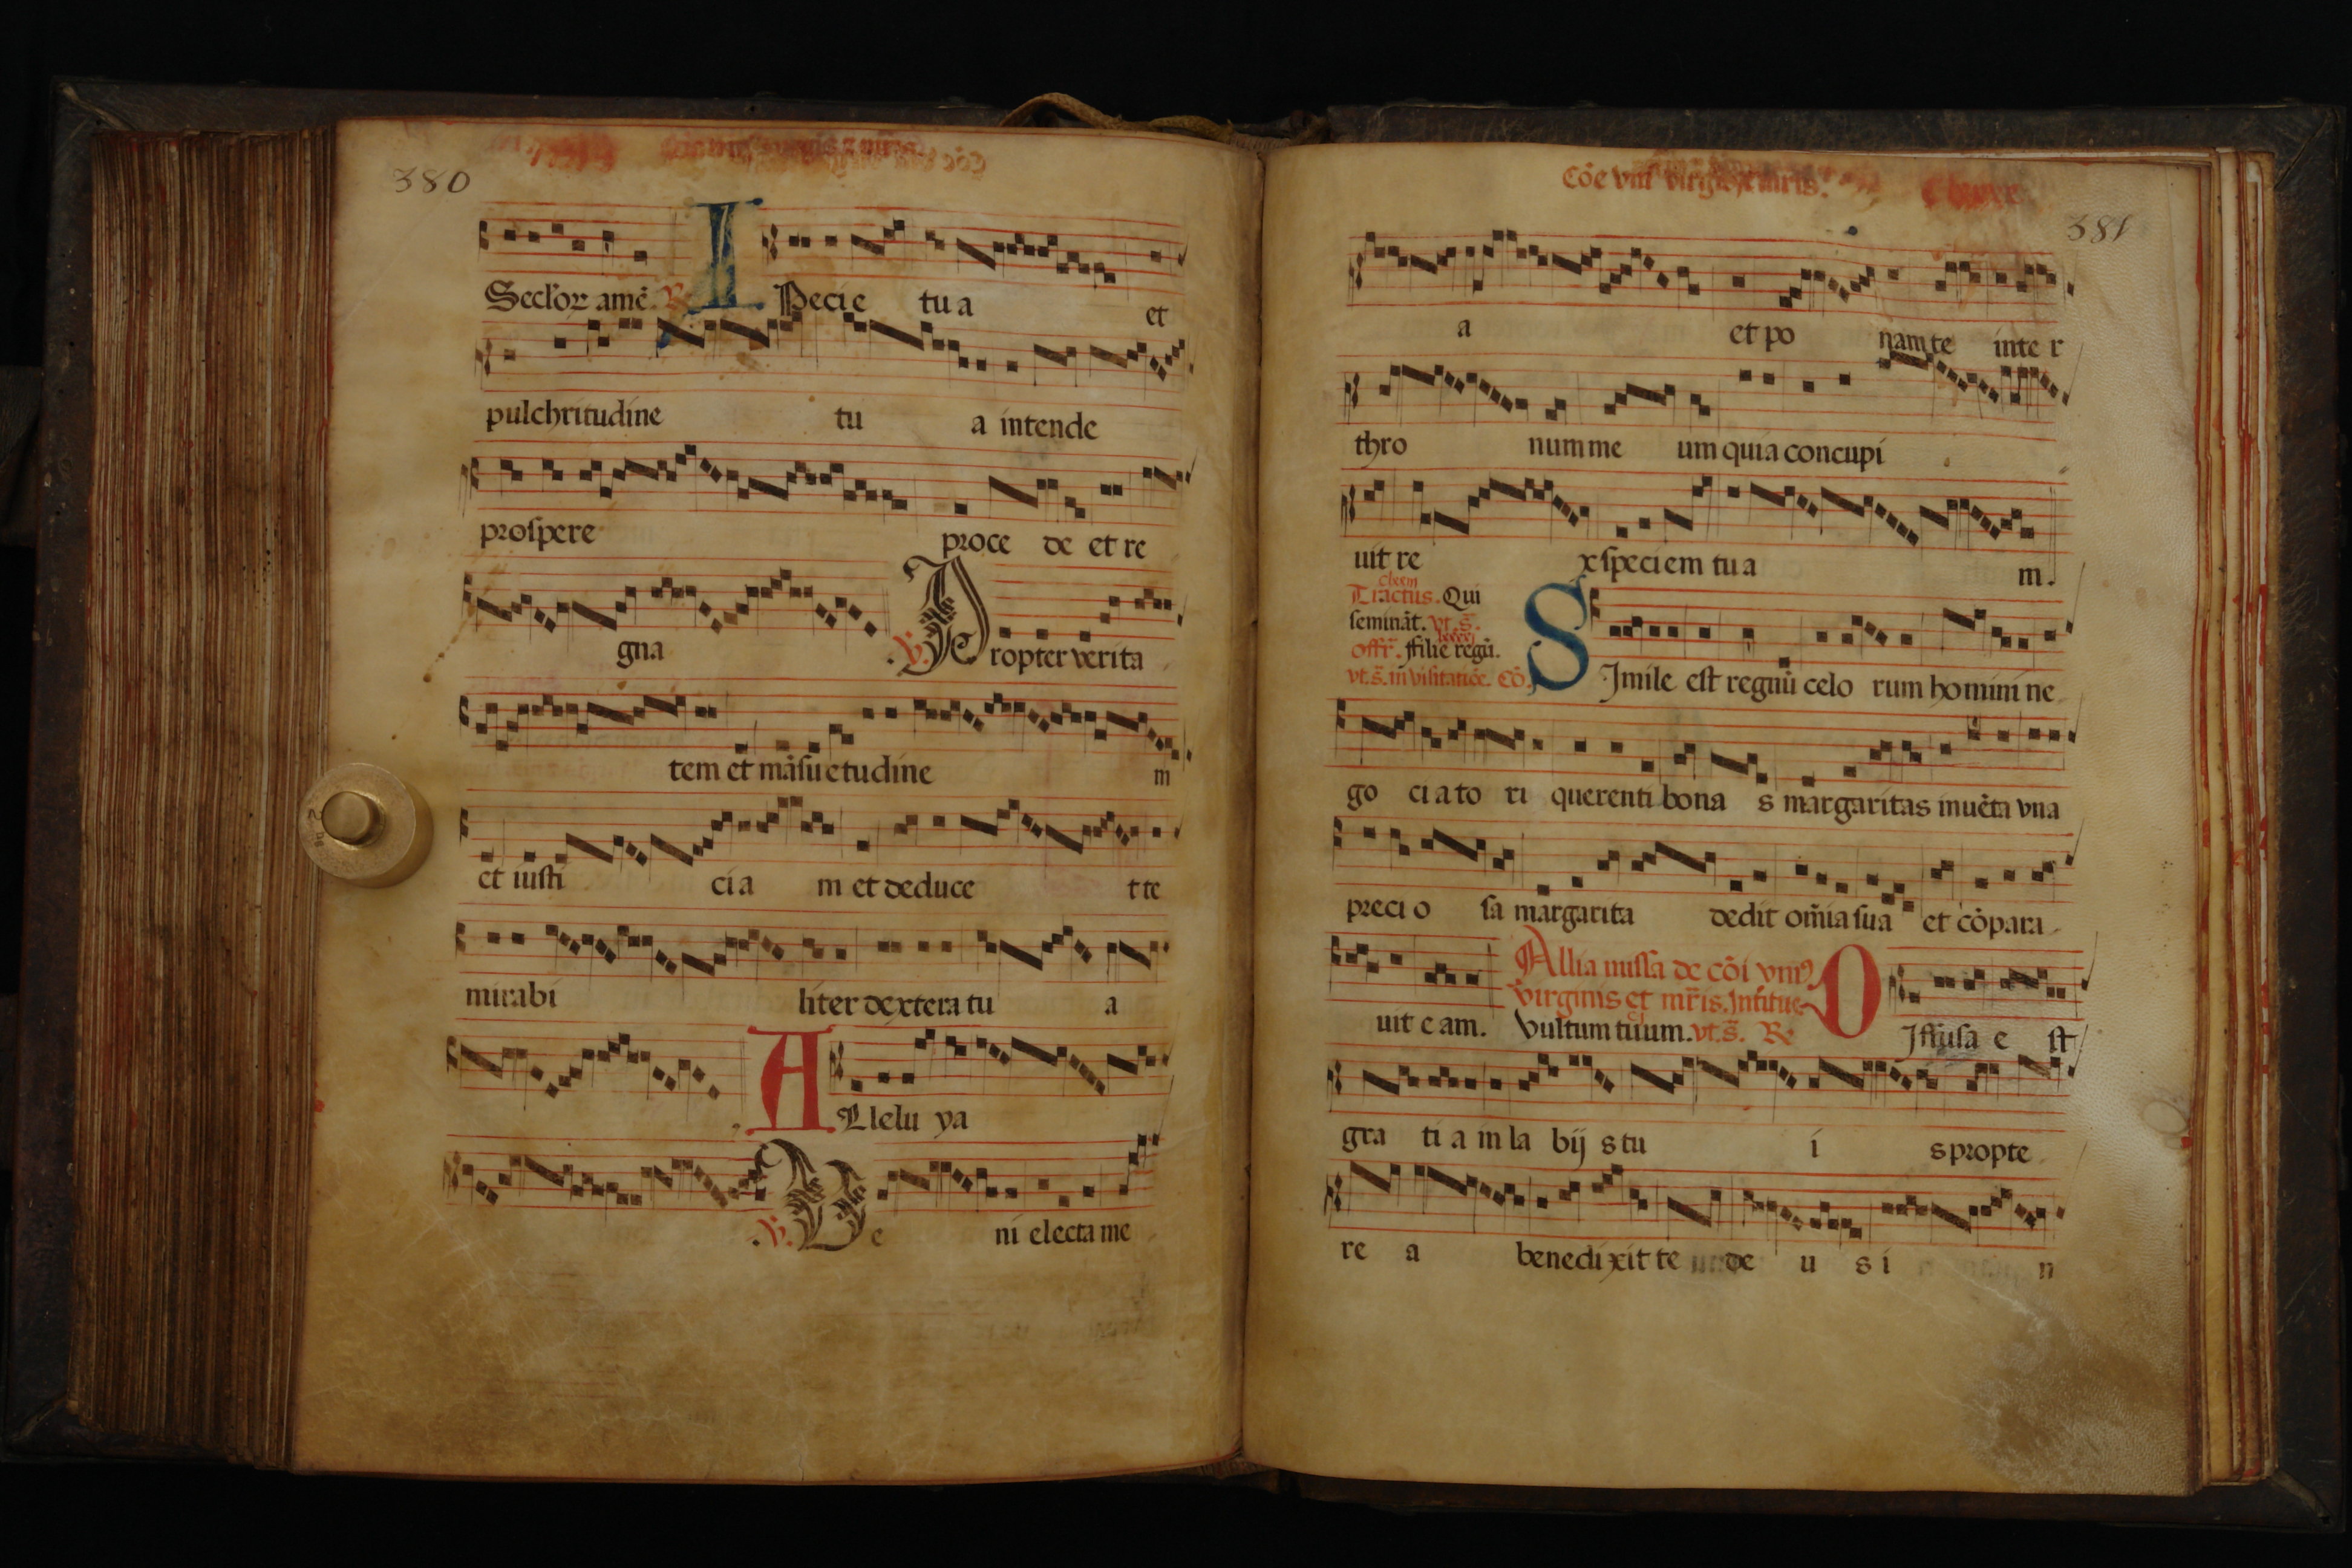 380
Secl'or amē. ℟. I Pecie tua et
pulchritudine tu a intende
prospere proce de et re
gna .℣. Propter verita
tem et māsuetudine m
et iusti cia m et deduce t te
mirabi liter dextera tu a
ALlelu ya
.℣. Ve ni electa me
Cōe vniꝰ virgīs
381
a et po nam te inte r
thro num me um quia concupi
uit re x speciem tua m.
Tractus. Qui
semināt. vt. s̄.
offr̄. ffilie regū.
vt. s̄. in visitatiōe. Cō.
SImile est regnū celo rum homini ne
go ciato ri querenti bona s margaritas inuēta vna
precio sa margarita dedit om̄ia sua et cōpara
Allia missa de cōi vniꝰ
virginis et mr̄is. Intitue
uit eam. Vultum tuum. vt. s̄. ℟. DIffusa e st
gra tia in la bij s tu i s propte
re a benedixit te de u s i n